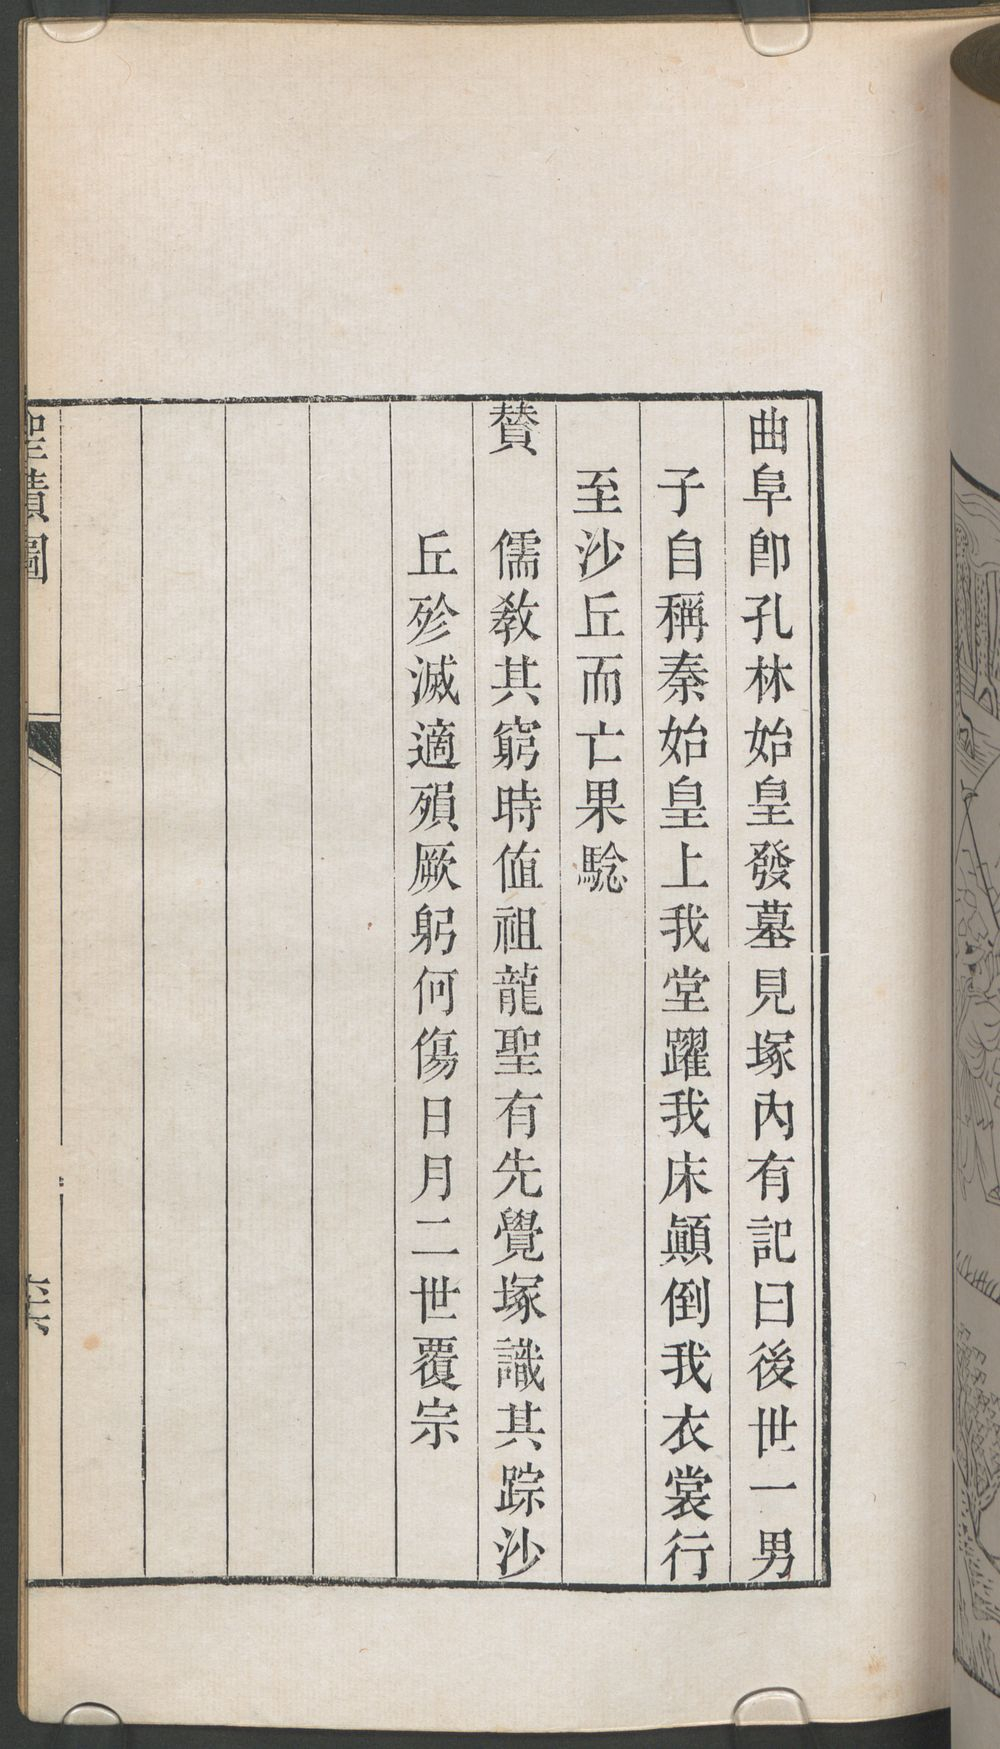 曲阜卽孔林始皇發墓見塚內有記曰後世一男
子自稱秦始皇上我堂躍我床顚倒我衣裳行
至沙丘而亡果騐
贊　儒敎其窮時值祖龍聖有先覺塚識其踪沙
丘殄滅適殞厥躬何傷日月二世覆宗
聖蹟圖